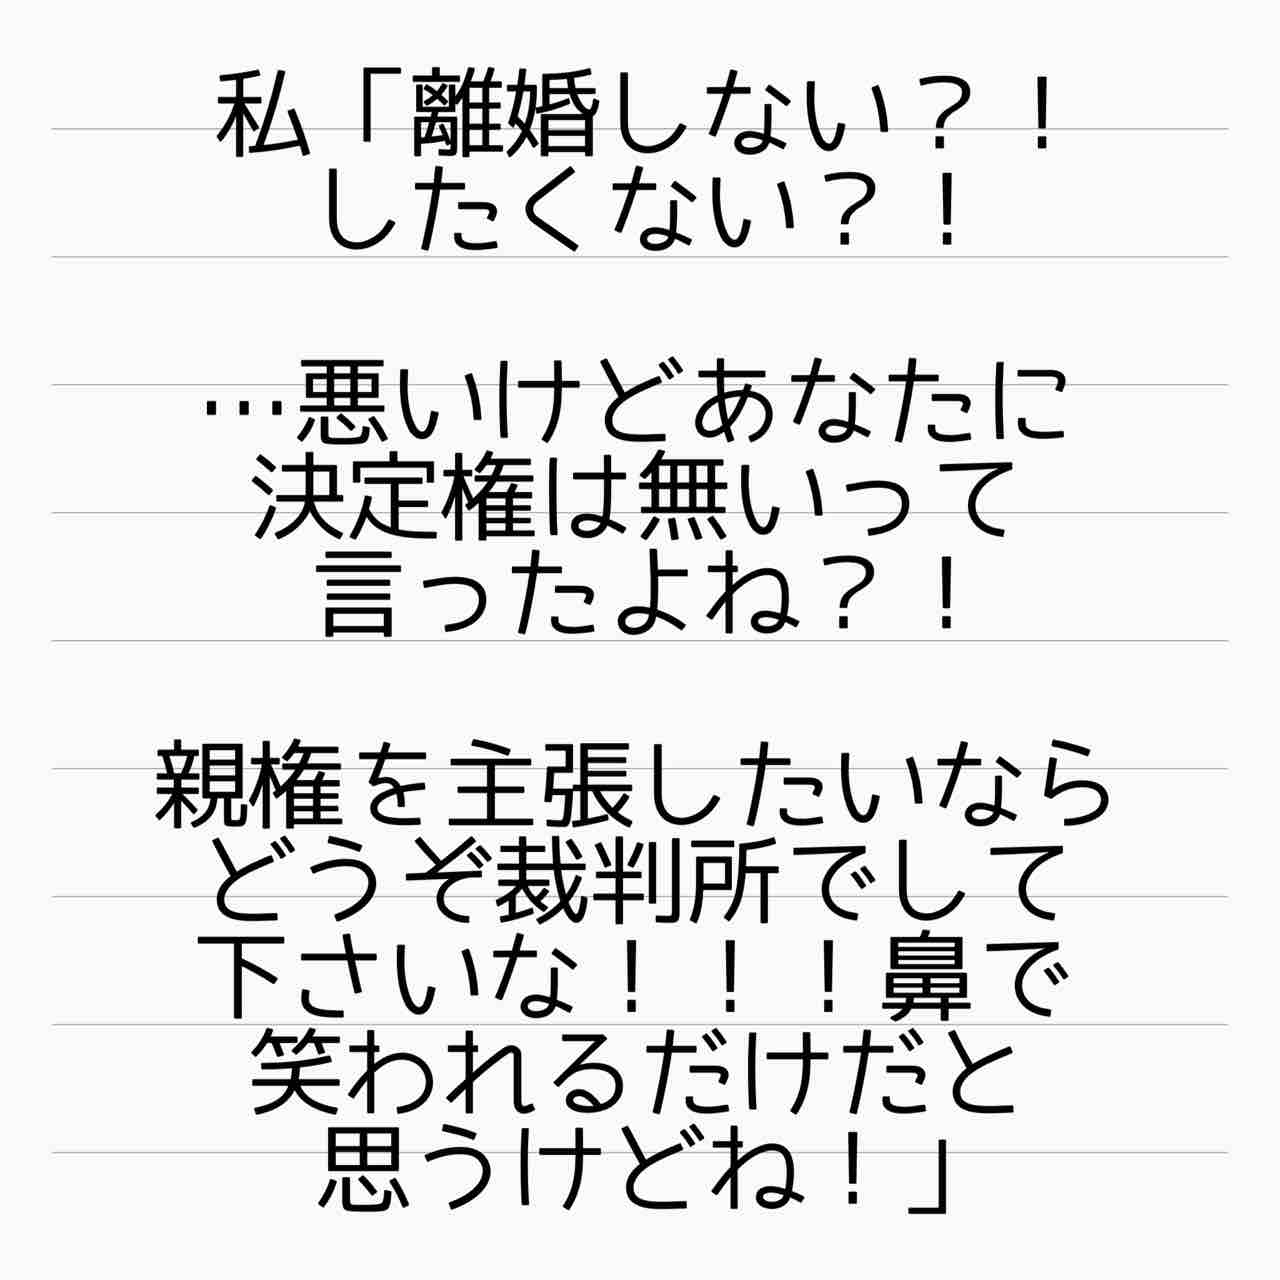 私「離婚しない？！
したくない？！
…悪いけどあなたに
決定権は無いって
言ったよね？！
親権を主張したいなら
どうぞ裁判所でして
下さいな！！！鼻で
笑われるだけだと
思うけどね！」